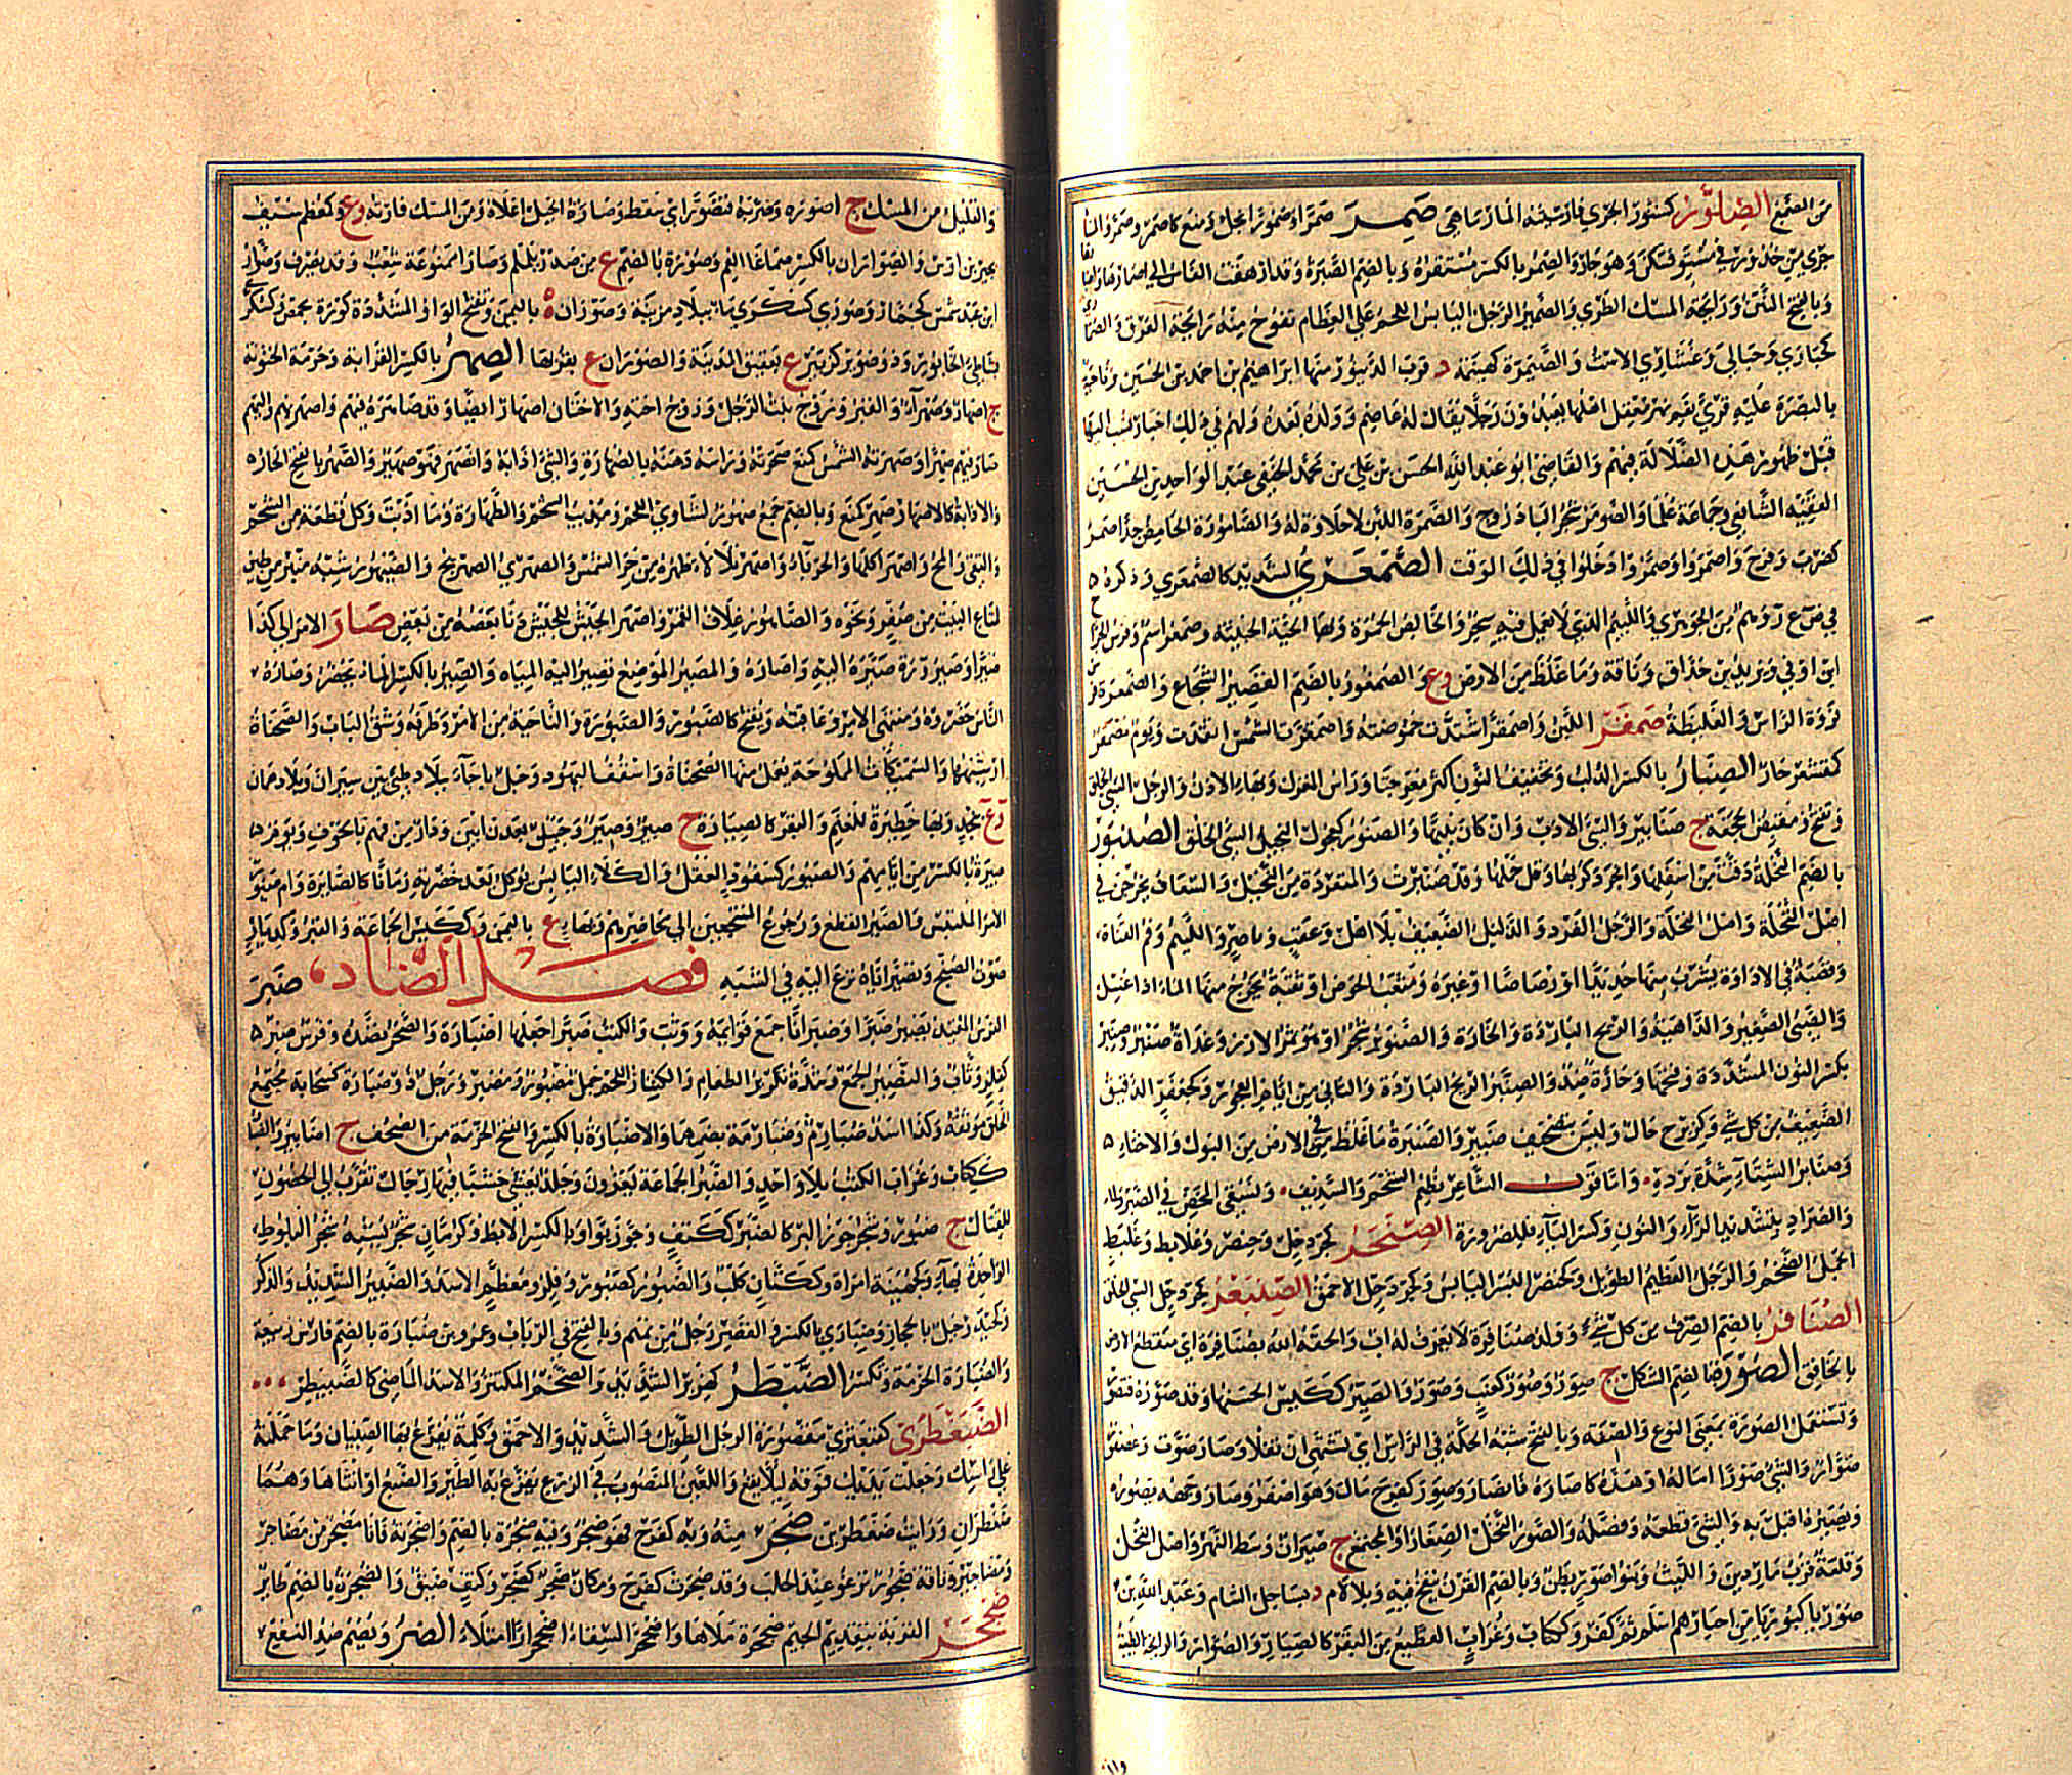 من الصمغ الصلور كسنور الجري فارسيته المارماهي صمر صمرا وصمورا بخل ومنع كاصمر وصمر والماء
جرى من حدور في مستو فسكن وهو جار والصمر بالكسر مستقره وبالضم الصبر وقد ادهقت الكاس الى اصمارها
وبالفتح النتن ورائحة المسك الطري والصمير الرجل اليابس اللحم على العظام تفوح منه رائحة العرق والصمارى
كحبارى وحبالى وعشارى الاست والصيمرة كهينمة د قرب الدينور منها ابراهيم بن احمد بن الحسين وناحية
بالبصرة عليه قرى بفم نهر معقل اهلها يعبدون رجلا يقال له عاصم وولده بعده ولهم في ذلك اخبار نسب اليها
قبل ظهور هذه الضلالة فيهم والقاضي ابو عبد الله الحسن بن علي بن محمد الحنفي عبد الواحد بن الحسين
الفقيه الشافعي وجماعة علما والصومر شجر الباذروج والصمرة اللبن لا حلاوة له والصامورة الحامض جدا صمر
كضرب وفرح واصمروا وصمروا دخلوا في ذلك الوقت الصمعري الشديد كالصمعري وذكره
في ص ع ر وهم من الجوهري واللئيم الذي لا يعمل فيه سحر والخالص الحمرة وبهاء الحية الخبيثة وصمعر اسم وفرس الجراح
ابن اوفى ويزيد بن خذاق وناقة وما غلظ من الارض وع والصمعور بالضم القصير الشجاع والصمعرة
فروة الراس والغليظة صمقر اللبن واصمقر اشتدت حموضته واصمقرت الشمس اتقدت ويوم مصمقر
كمقشعر حار الصنار بالكسر الدلب وتخفيف النون اكثر معرب جنار وراس المغزل وبهاء الاذن والرجل السيئ الخلق
وتفتح ومقبض الحجفة ج صنابير والسيئ الادب وان كان نبيها والصنور كعجول البخيل السيئ الخلق الصنبور
بالضم النخلة دقت من اسفلها وانجرد كربها وقل حملها وقد صنبرت والمنفردة من النخيل والسعفات يخرجن في
اصل النخلة واصل النخلة والرجل الفرد والذليل الضعيف بلا اهل وعقب وناصر واللئيم وفم القناة
وقصبة في الاداوة يشرب منها حديدا او رصاصا او غيره ومثعب الحوض او ثقبه يخرج منها الماء اذا غسل
والصبي الصغير والداهية والريح الباردة والحارة والصنوبر شجر او هو ثمر الارز وغداة صنبر وصنبر
بكسر النون المشددة وفتحها وحارة ضد والصنبر الريح الباردة والثاني من ايام العجوز وكجعفر الدقيق
الضعيف من كل شيء وكزبرج جبل وليس بتصحيف ضبيب والصنبرة ما غلظ في الارض من البول والاخثاء
وصنابر الشتاء شدة برده واما قول الشاعر نطعم الشحم والسديف ونسقي المحض في الصنبر
والصراد بتشديد الراء والنون وكسر الباء فللضرورة الصنخر كجردحل وخنصر وعلابط وعليط
الجمل الضخم والرجل العظيم الطويل وكخنصر البسر اليابس وكجردحل الاحمق الصنبعر كجردحل السيئ الخلق
الصنافر بالضم الصرف من كل شيء وولد صنافرة لا يعرف له اب والحقه الله بصنافرة اي منقطع الارض
بالخافق الصورة بالضم الشكل ج صور وصور كعنب وصور والصير ككيس الحسنها وقد صوره فتصور
وتستعمل الصورة بمعنى النوع والصفة وبالفتح شبه الحكة في الراس اي تشتهي ان تفلا وصار صوت وعصفور
صوار والشيء صورا اماله او هده كاصاره فانصار وصور كفرح مال وهو اصور وصار وجهه يصوره
ويصيره اقبل به والشيء قطعه وفصله والصور النخل الصغار او المجتمع ج صيران وشط النهر واصل النخل
وقلعة قرب ماردين والليث وبنو صور بطن وبالضم القرن ينفخ فيه وبلا لام د بساحل الشام وعبد الله بن
صوريا كبوريا من احبارهم اسلم ثم كفر وككتاب وغراب القطيع من البقر كالصيار والصوار والرائحة الطيبة
والقليل من المسك ج اصورة وضربه فتصور اي سقط وصارة الجبل اعلاه ومن المسك فارته وع وكمعظم سيف
بجير بن اوس والصوران بالكسر صماغا الفم وصورة بالضم ع من صدر يلملم وصارا ممنوعة شعب وقد يصرف وصوار
ابن عبد شمس كجمار وصورى كسكرى ماء ببلاد مزينة وصوران ة باليمن وبفتح الواو المشددة كورة بحمص وكسكر
بشاطئ الخابور وذو صوير كزبير ع بعقيق المدينة والصوران ع بقربها الصهر بالكسر القرابة وحرمة الختونة
ج اصهار وصهراء والقبر وزوج بنت الرجل وزوج اخته والاختان اصهار ايضا وقد صاهرهم وفيهم واصهر بهم واليهم
صار فيهم صهرا وصهرته الشمس كمنع صحرته وراسه دهنه بالصهارة والشيء اذابه وانصهر فهو صهير والصهر بالفتح الحار
والاذابة كالاصهار صهر كمنع وبالضم جمع صهور لشاوي اللحم ومذيب الشحم والصهارة وما اذبت وكل قطعة من الشحم
والنقي والمخ واصهر اكلها والحرباء واصهر تلالا ظهره من حر الشمس والصهري الصهريج والصيهور شبه منبر من طين
لمتاع البيت من صفر ونحوه والصاهور غلاف القمر واصهر الجيش للجيش دنا بعضه من بعض صار الامر الى كذا
صيرا ومصيرا وصيرورة وصيره اليه واصاره والمصير الموضع تصير اليه المياه والصير بالكسر الماء يحضره وصاره
الناس حضروه ومنتهى الامر وعاقبته ويفتح كالصيور والصيورة والناحية من الامر وطرفه وشق الباب والصحناة
او شبهها والسميكات المملوحة يعمل منها الصحناة واسقف اليهود وجبل باجاء ببلاد طيئ بين سيراف وبلاد عمان
وع بنجد وبهاء حظيرة للغنم والبقر كالصيارة ج صير وصير وجبل بعدن ابين ودار من فهم بالجوف ويوم
صيرة بالكسر من ايامهم والصيور كسفود العقل والكلا اليابس يؤكل بعد خضرته زمانا كالصايرة وام صيور
الامر الملتبس والصير القطع ورجوع المنتجعين الى محاضرهم وبهاء ع باليمن وككيس الجماعة والقبر وكديار
صوت الصنج وتصير اباه نزع اليه في الشبه فصل الضاد ضبر
الفرس المقيد يضبر ضبرا وضبرانا جمع قوائمه ووثب والكتب ضبرا جعلها اضبارة والصخر نضده وفرس ضبر
كطمر وثاب والتضبير الجمع وشدة تكزيز العظام واكتناز اللحم جمل مضبور ومضبر ورجل ذو ضبارة كسحابة مجتمع
الخلق موثقه وكذا اسد ضبارم وضبارمة بضمهما والاضبارة بالكسر والفتح الحزمة من الصحف ج اضابير والضبار
ككتاب وغراب الكتب بلا واحد والضبر الجماعة يغزون وجلد يغشى خشبا فيها رجال تقرب الى الحصون
للقتال ج ضبور وشجر جوز البر كالضبر ككتف وجوز بوا وبالكسر الابط وكرمان شجر يشبه شجر البلوط
الواحدة بهاء وكجهينة امراة وككتان كلب والضبور كصبور وفلز ومعظم الاسد والضبير الشديد والذكر
وكحيدر جبل بالحجاز وضبارى بالكسر والقصر رجل من تميم وبالفتح في الرباب وعمرو بن ضبارة بالضم فارس ربيعة
والضبارة الحزمة وتكسر الضبطر كهزبر الشديد والضخم المكتنز والاسد الماضي كالضبيطر
الضبغطرى كقبعثرى مقصورة الرجل الطويل والشديد والاحمق وكلمة يفزع بها الصبيان وما حملته
على راسك وجعلت يديك فوقه لئلا يقع واللعين المنصوب في الزرع يفزع به الطير والضبع او انثاها وهما
ضبغطران ورايت ضبغطرين ضجر منه وبه كفرح فهو ضجر وفيه ضجرة بالضم واضجرته فانا مضجر من مضاجر
ومضاجير وناقة ضجور ترغو عند الحلب وقد ضجرت كفرح ومكان ضجر كضجر وكتف ضيق والضجرة بالضم طائر
ضجحر القربة بتقديم الجيم ضجحرة ملاها واضجحر السقاء اضجحرارا امتلا الضر ويضم ضد النفع